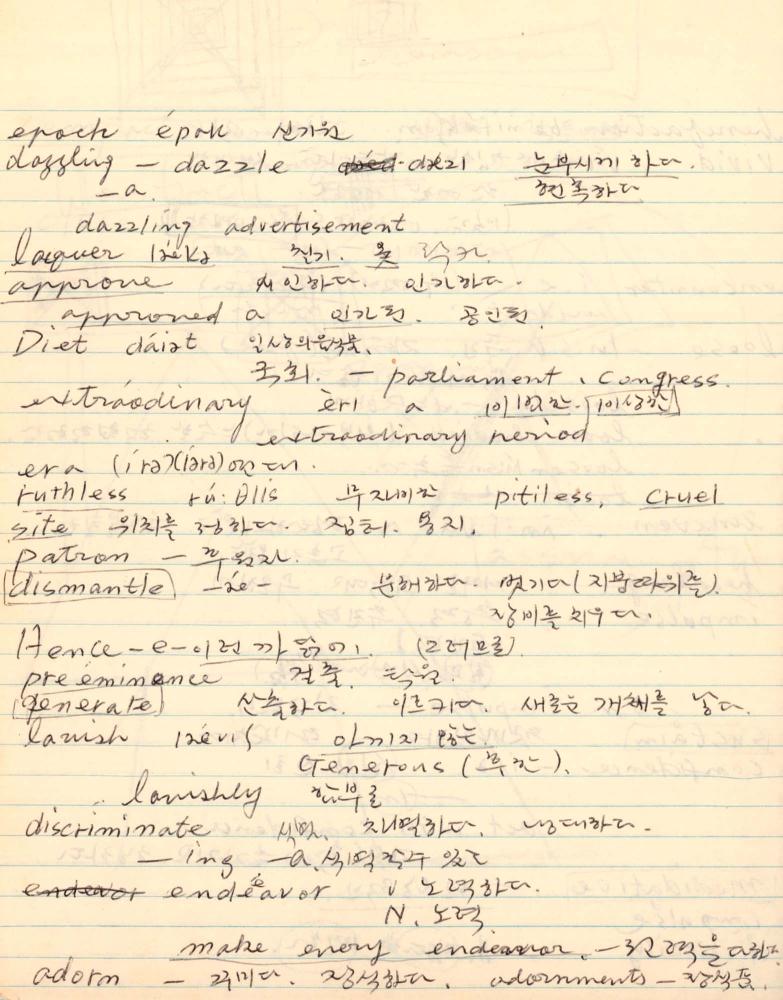 epoch épok 신기원
dazzling – dazzle dæzl 눈부시게 하다.
–a. 현혹하다
dazzling advertisement
laquer lǽkə 칠기. 옻 락카.
approve 시인하다. 인가하다.
approved a 인가된. 공인된.
Diet dáiət 일상의음식물.
국회. – parliament, congress.
extráodinary èri a 비범한. 이상한
extraodinary period
era (írə)(íərə) 연대.
ruthless rú:θlis 무자비한 pitiless, cruel
site 위치를 정하다. 집터. 용지.
patron – 후원자.
dismantle –æ– 분해하다. 벗기다(지붕따위를).
장비를 치우다.
Hence – e – 이런 까닭에. (그러므로).
preéminence 걸출. 탁월.
generate 산출하다. 이르키다. 새로운 개체를 낳다.
lavish lǽviʃ 아끼지 않는.
Generous (후한).
lavishly 함부로
discriminate 식별. 차별하다. 냉대하다.
– ing –a. 식별할수 있는
endeavor endeavor v 노력하다.
N. 노력
make every endeavor. – 전력을 다하다.
adorn – 꾸미다. 장식하다. adornments – 장식품.